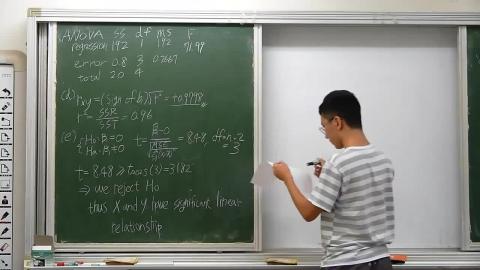 ANOVA SS df MS F
regression 19.2 1 19.2 71.99
error 0.8 3 0.2667
total 20 4
(d) rxy = (sign of b1)√r² = +0.9798
r² = SSR/SST = 0.96
(e) {H0: β1=0 Ha: β1≠0 t = β1-0 / √MSE/Σ(x-x̄)² = 8.48, df=n-2 = 3
t = 8.48 > t0.025(3) = 3.182
⇒ we reject H0
thus X and Y have significant linear
relationship